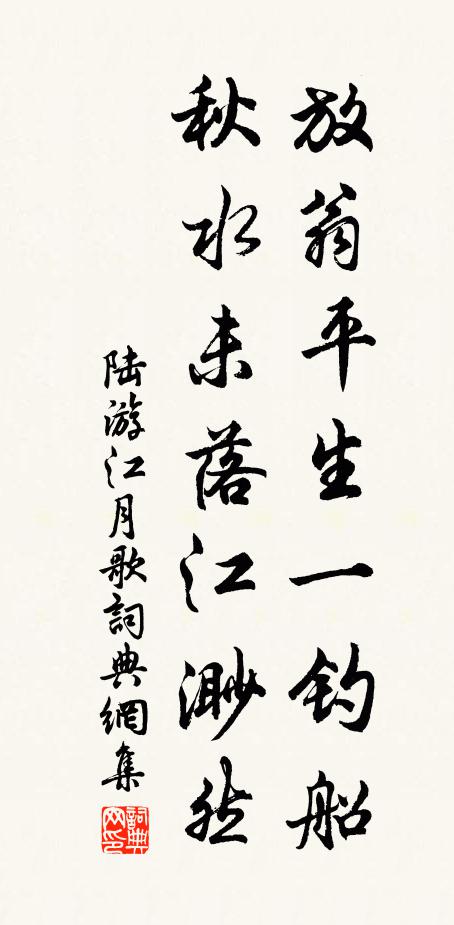 放翁平生一钓船
秋水未落江渺然
陆游江月歌詞典網集
詞典
网印